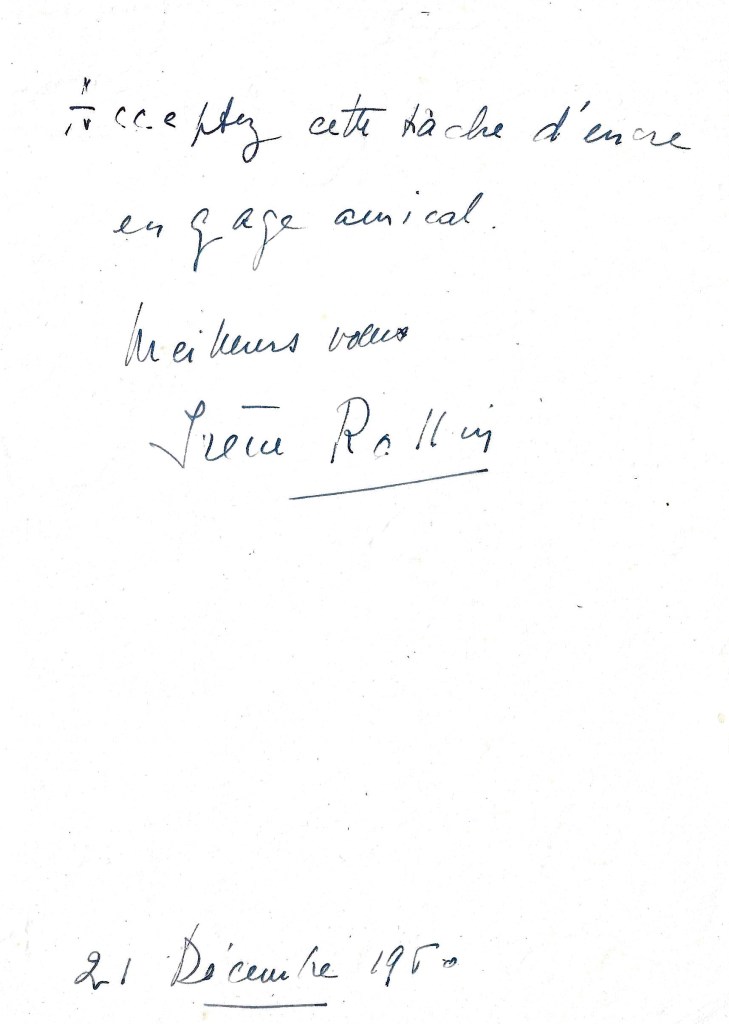 Acceptez cette tâche d'encre
en gage amical.
Meilleurs vœux
Irène Rollin
21 Décembre 1950